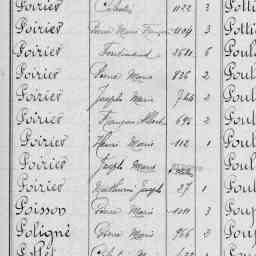 Poirier Célestin 1122 3 Potti
Poirier Pierre Marie François 1124 3 Potti
Poirier Ferdinand 2581 6 Poul
Poirier Pierre Marie 836 2 Poul
Poirier Joseph Marie 746 2 Poul
Poirier François Albert 696 2 Poul
Poirier Henri Marie 112 1 Poul
Poirier Joseph Marie Poul
Poirier Mathurin Joseph 27 1 Poul
Poisson Pierre Marie 1011 3 Poup
Poligné Pierre Marie 966 2 Poup